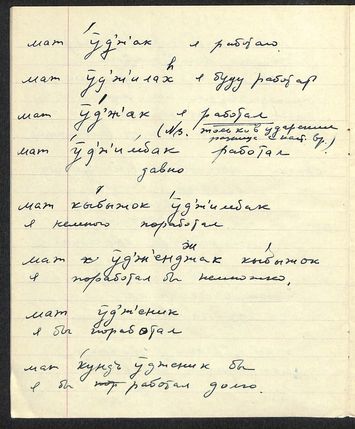 мат ӱд'ж'ак я работаю.
мат ӱд'ж'илах я буду работать
мат ӱд'ж'ак я работал
(N/з. только в ударении
разница с наст. вр.)
мат ӱд'ж'имбак работал
давно
мат кыбыжок ӱд'ж'имбак
я немного поработал
мат к ӱд'ж'енджак кыбыжок
я поработал бы немножко,
мат ӱд'ж'еник
я бы поработал
мат кундъ ӱдженик бы
я бы работал долго.